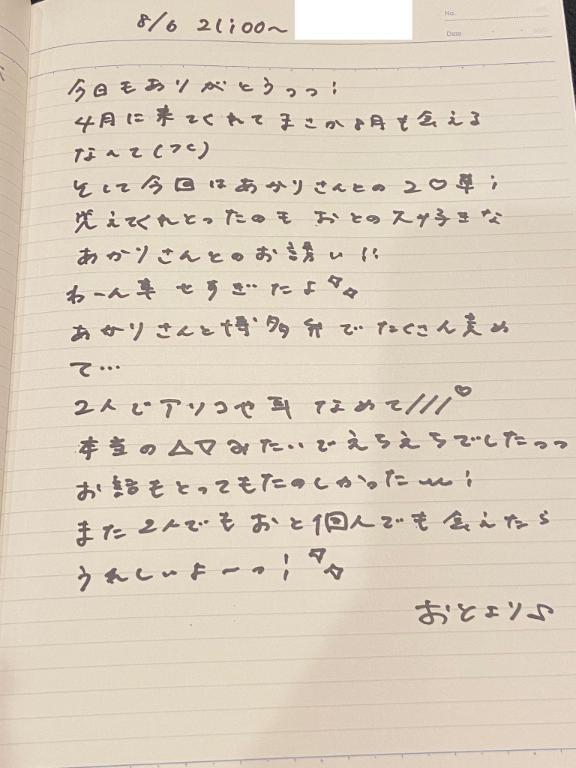 8/6 21:00〜
No.
Date
今日もありがとうっっ!
4月に来てくれてまさか8月も会える
なんて(つに)
そして今回はあかりさんとの2♡単!
覚えてくれとったのも おとのスキ好きな
あかりさんとのお誘い!!
わーん幸せすぎたよ
あかりさんと博多弁でたくさん責め
て…
2人でアソコや耳なめて///♡
本当の△▽みたいでえちえちでしたっっ
お話もとってもたのしかったー!
また2人でもおと1個人でも会えたら
うれしいよ〜っ!
おとより♪